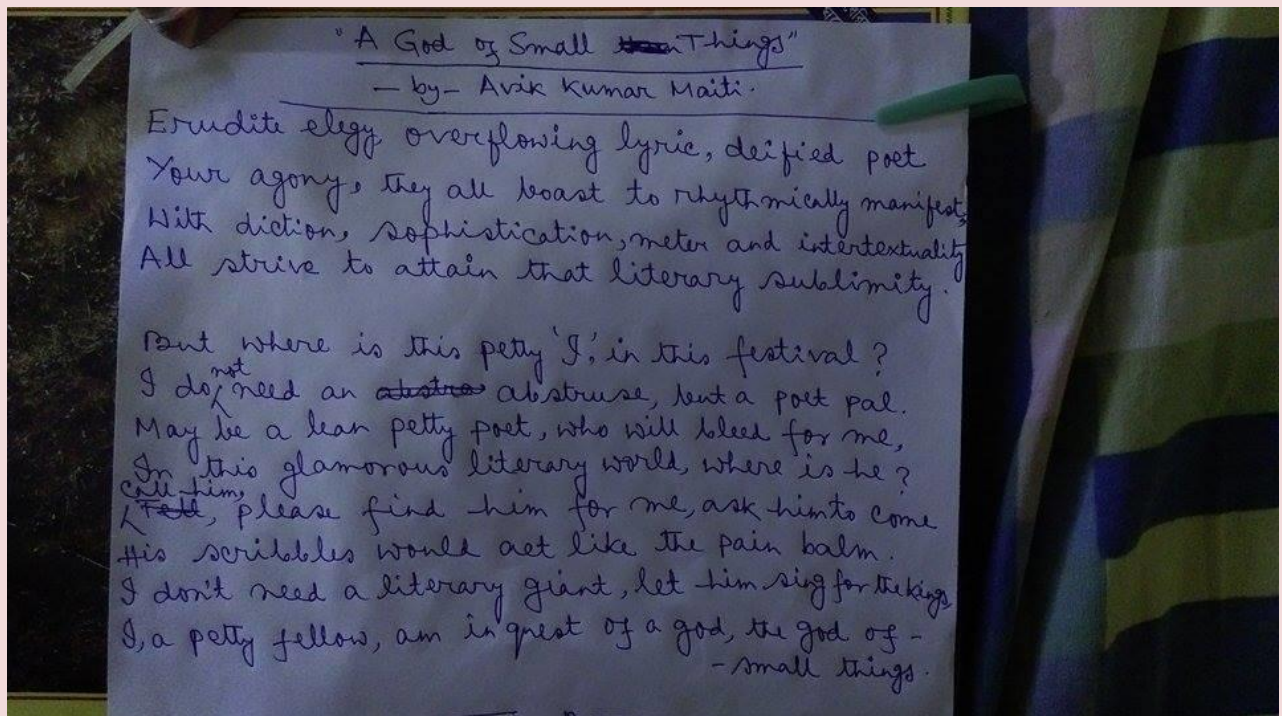 "A God of Small Things"
— by — Avik Kumar Maiti.
Erudite elegy overflowing lyric, deified poet
Your agony, they all boast to rhythmically manifest,
With diction, sophistication, meter and intertextuality
All strive to attain that literary sublimity.
But where is this petty 'I', in this festival?
I do not need an abstruse, but a poet pal.
May be a lean petty poet, who will bleed for me,
In this glamorous literary world, where is he?
call him, please find him for me, ask him to come
His scribbles would act like the pain balm.
I don't need a literary giant, let him sing for the kings,
I, a petty fellow, am in quest of a god, the god of -
- small things.